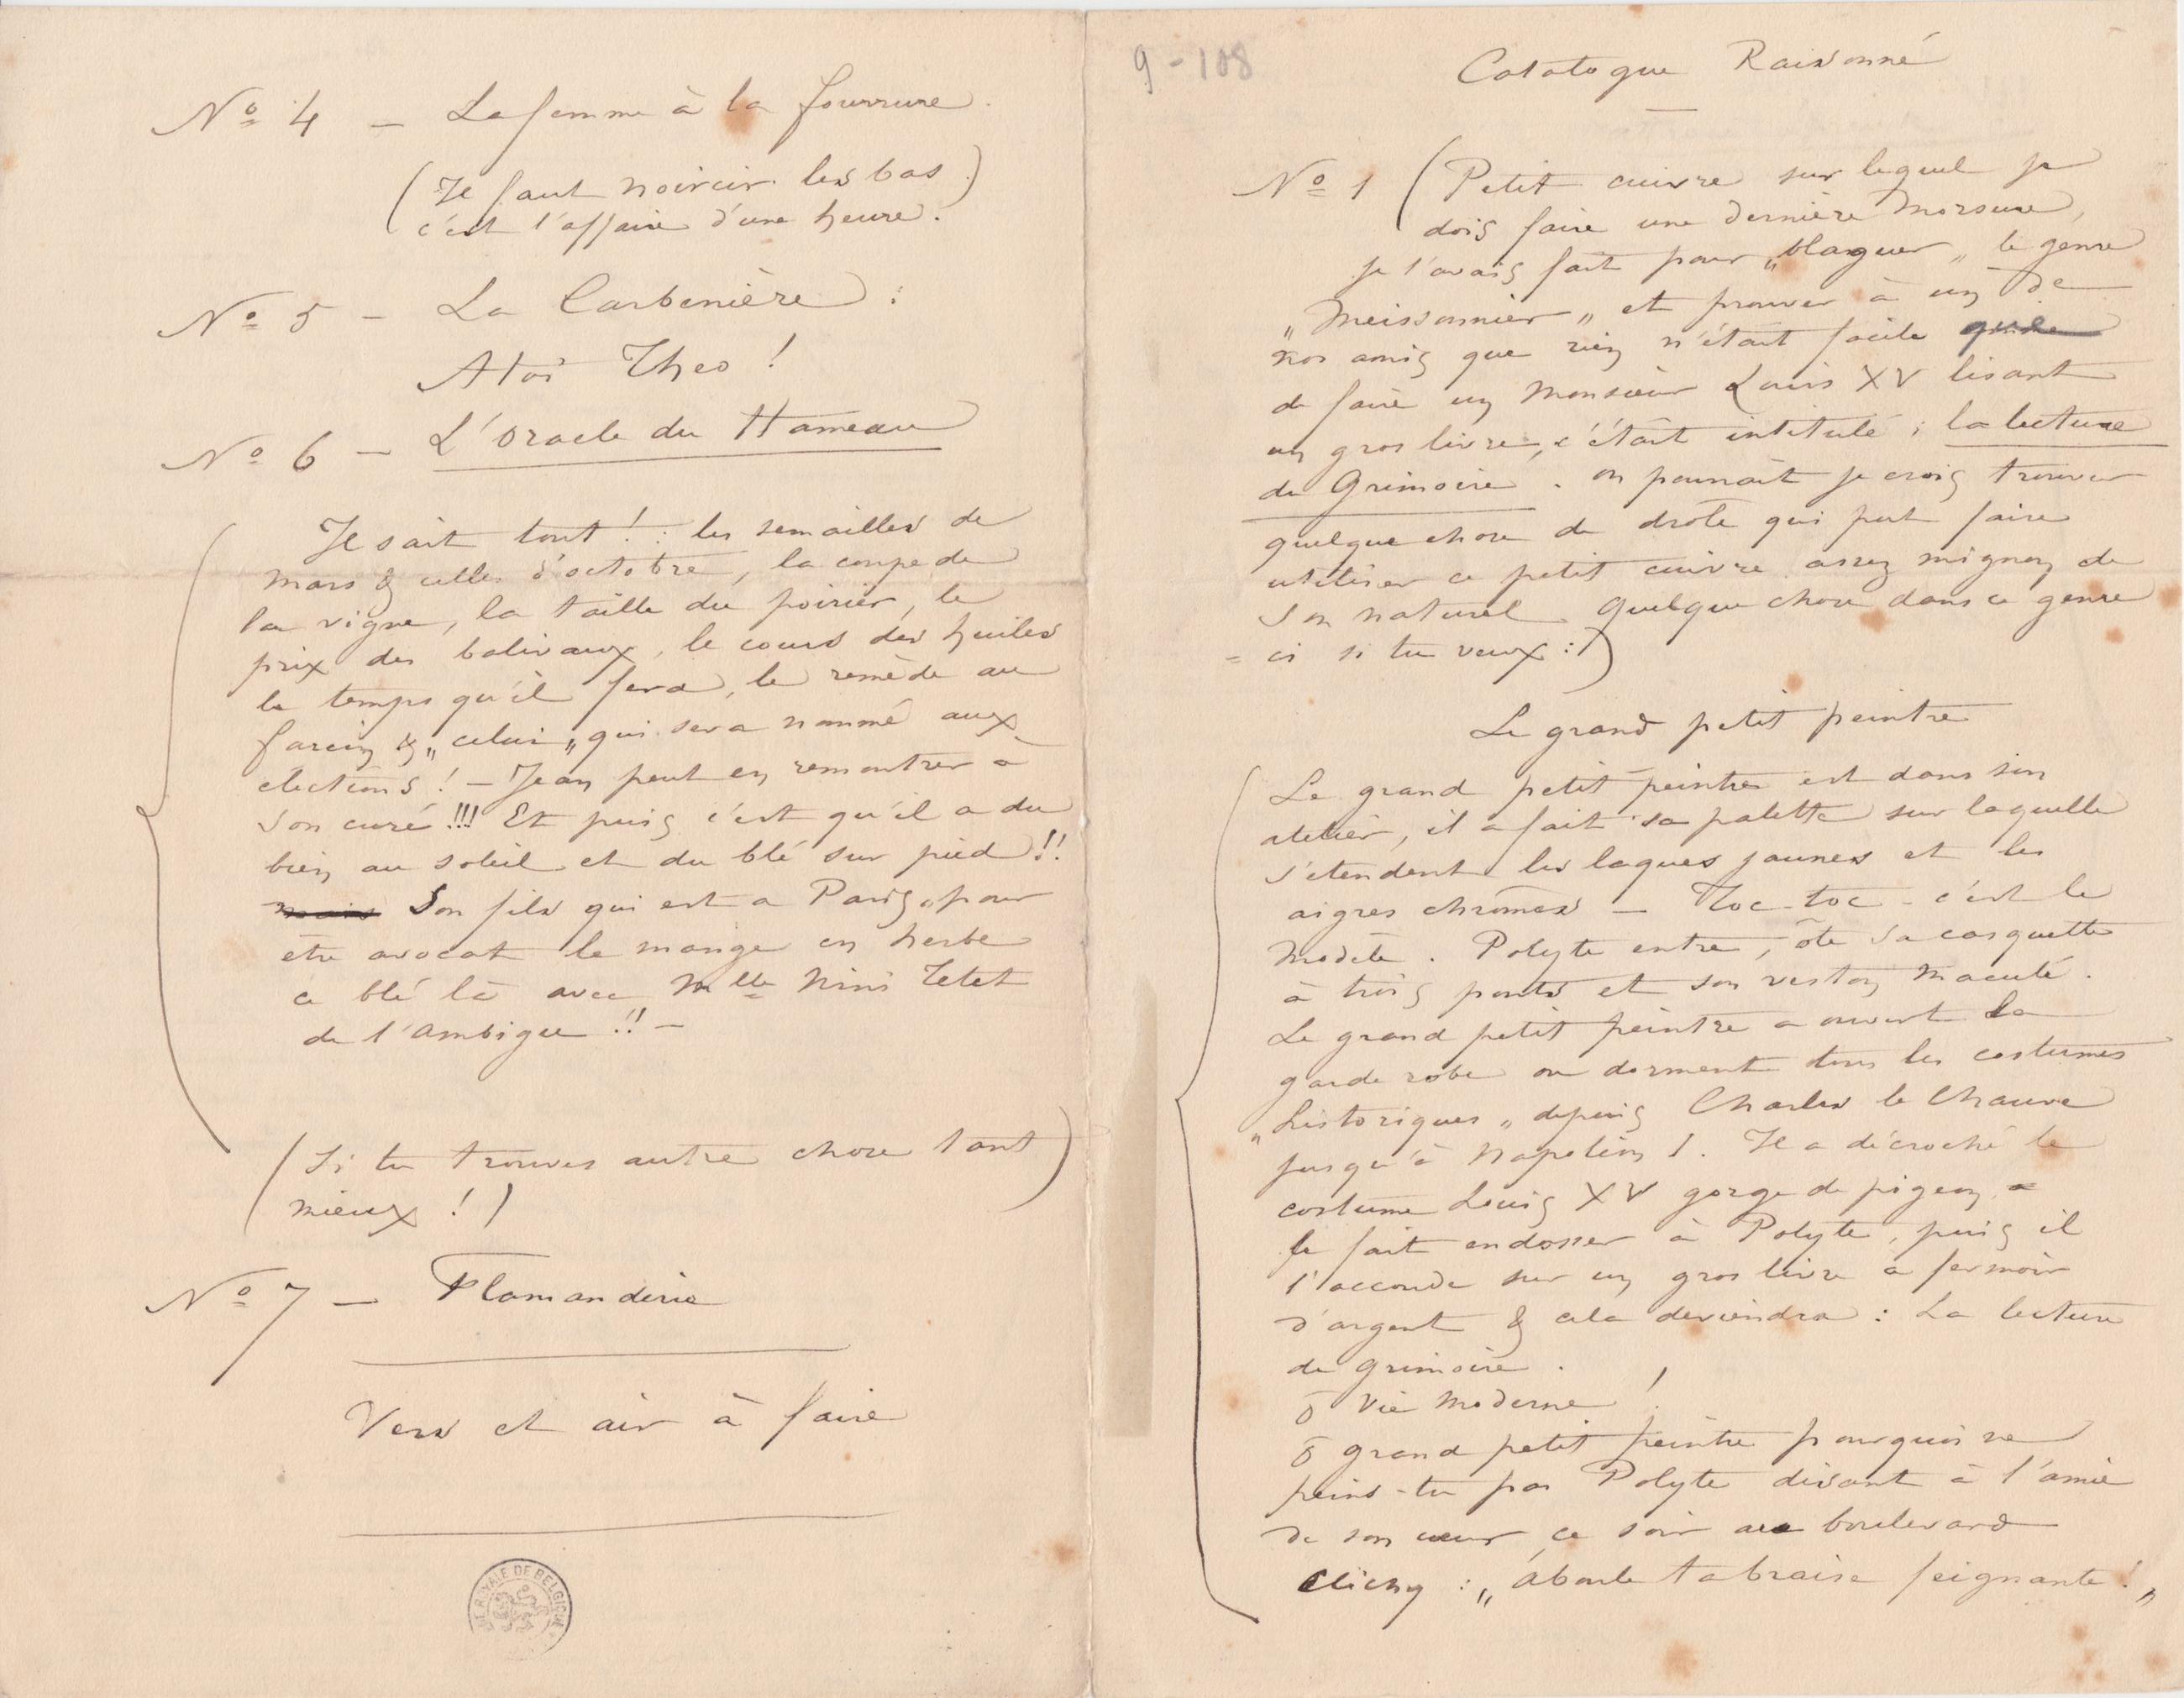 9-108
Catalogue Raisonné
Nº 1 (Petit cuivre sur lequel je
dois faire une dernière morsure,
je l'avais fait pour „blaguer„ le genre
„Meissonnier„ et prouver à un de
nos amis que rien n'était facile que
de faire un Monsieur Louis XV lisant
un gros livre, c'était intitulé ; la lecture
du Grimoire. on pourrait je crois trouver
quelque chose de drôle qui put faire
utiliser ce petit cuivre assez mignon de
son naturel. Quelque chose dans ce genre
= ci si tu veux :)
Le grand petit peintre
Le grand petit peintre est dans son
atelier, il a fait sa palette sur laquelle
s'etendent les laques jaunes et les
aigres chrômes — Toc-toc - c'est le
modèle. Polyte entre, ôte sa casquette
à trois ponts et son veston maculé.
Le grand petit peintre a ouvert la
garde robe ou dorment tous les costumes
„historiques„ depuis Charles le Chauve
jusqu'à Napoléon I. Il a décroché le
costume Louis XV gorge de pigeon,
le fait endosser à Polyte, puis il
l'accoude sur un gros livre à fermoir
d'argent & cela deviendra : La lecture
du grimoire.
ô vie moderne !
ô grand petit peintre pourquoi ne
peins-tu pas Polyte disant à l'amie
de son cœur, ce soir au boulevard
Clichy : „Aboule ta braise feignante !„
Nº 4 — La femme à la fourrure.
(Il faut noircir les bas.
c'est l'affaire d'une heure.)
Nº 5 — La Carbonière :
A toi Theo !
Nº 6 — L'Oracle du Hameau
Il sait tout ! : les semailles de
mars & celles d'octobre, la coupe de
la vigne, la taille du poirier, le
prix des baliveaux, le cours des huiles
le temps qu'il fera, le remède au
farcin & „celui„ qui sera nommé aux
élections ! — Jean peut en remontrer à
son curé !!! Et puis c'est qu'il a du
bien au soleil et du blé sur pied !!
mais Son fils qui est a Paris, pour
etre avocat le mange en herbe
ce blé là avec Mlle Nini Tetet
de l'ambigu !! —
(Si tu trouves autre chose tant
mieux !)
Nº 7 — Flamanderie
Vers et air à faire
BT ROYALE DE BELGIQUE